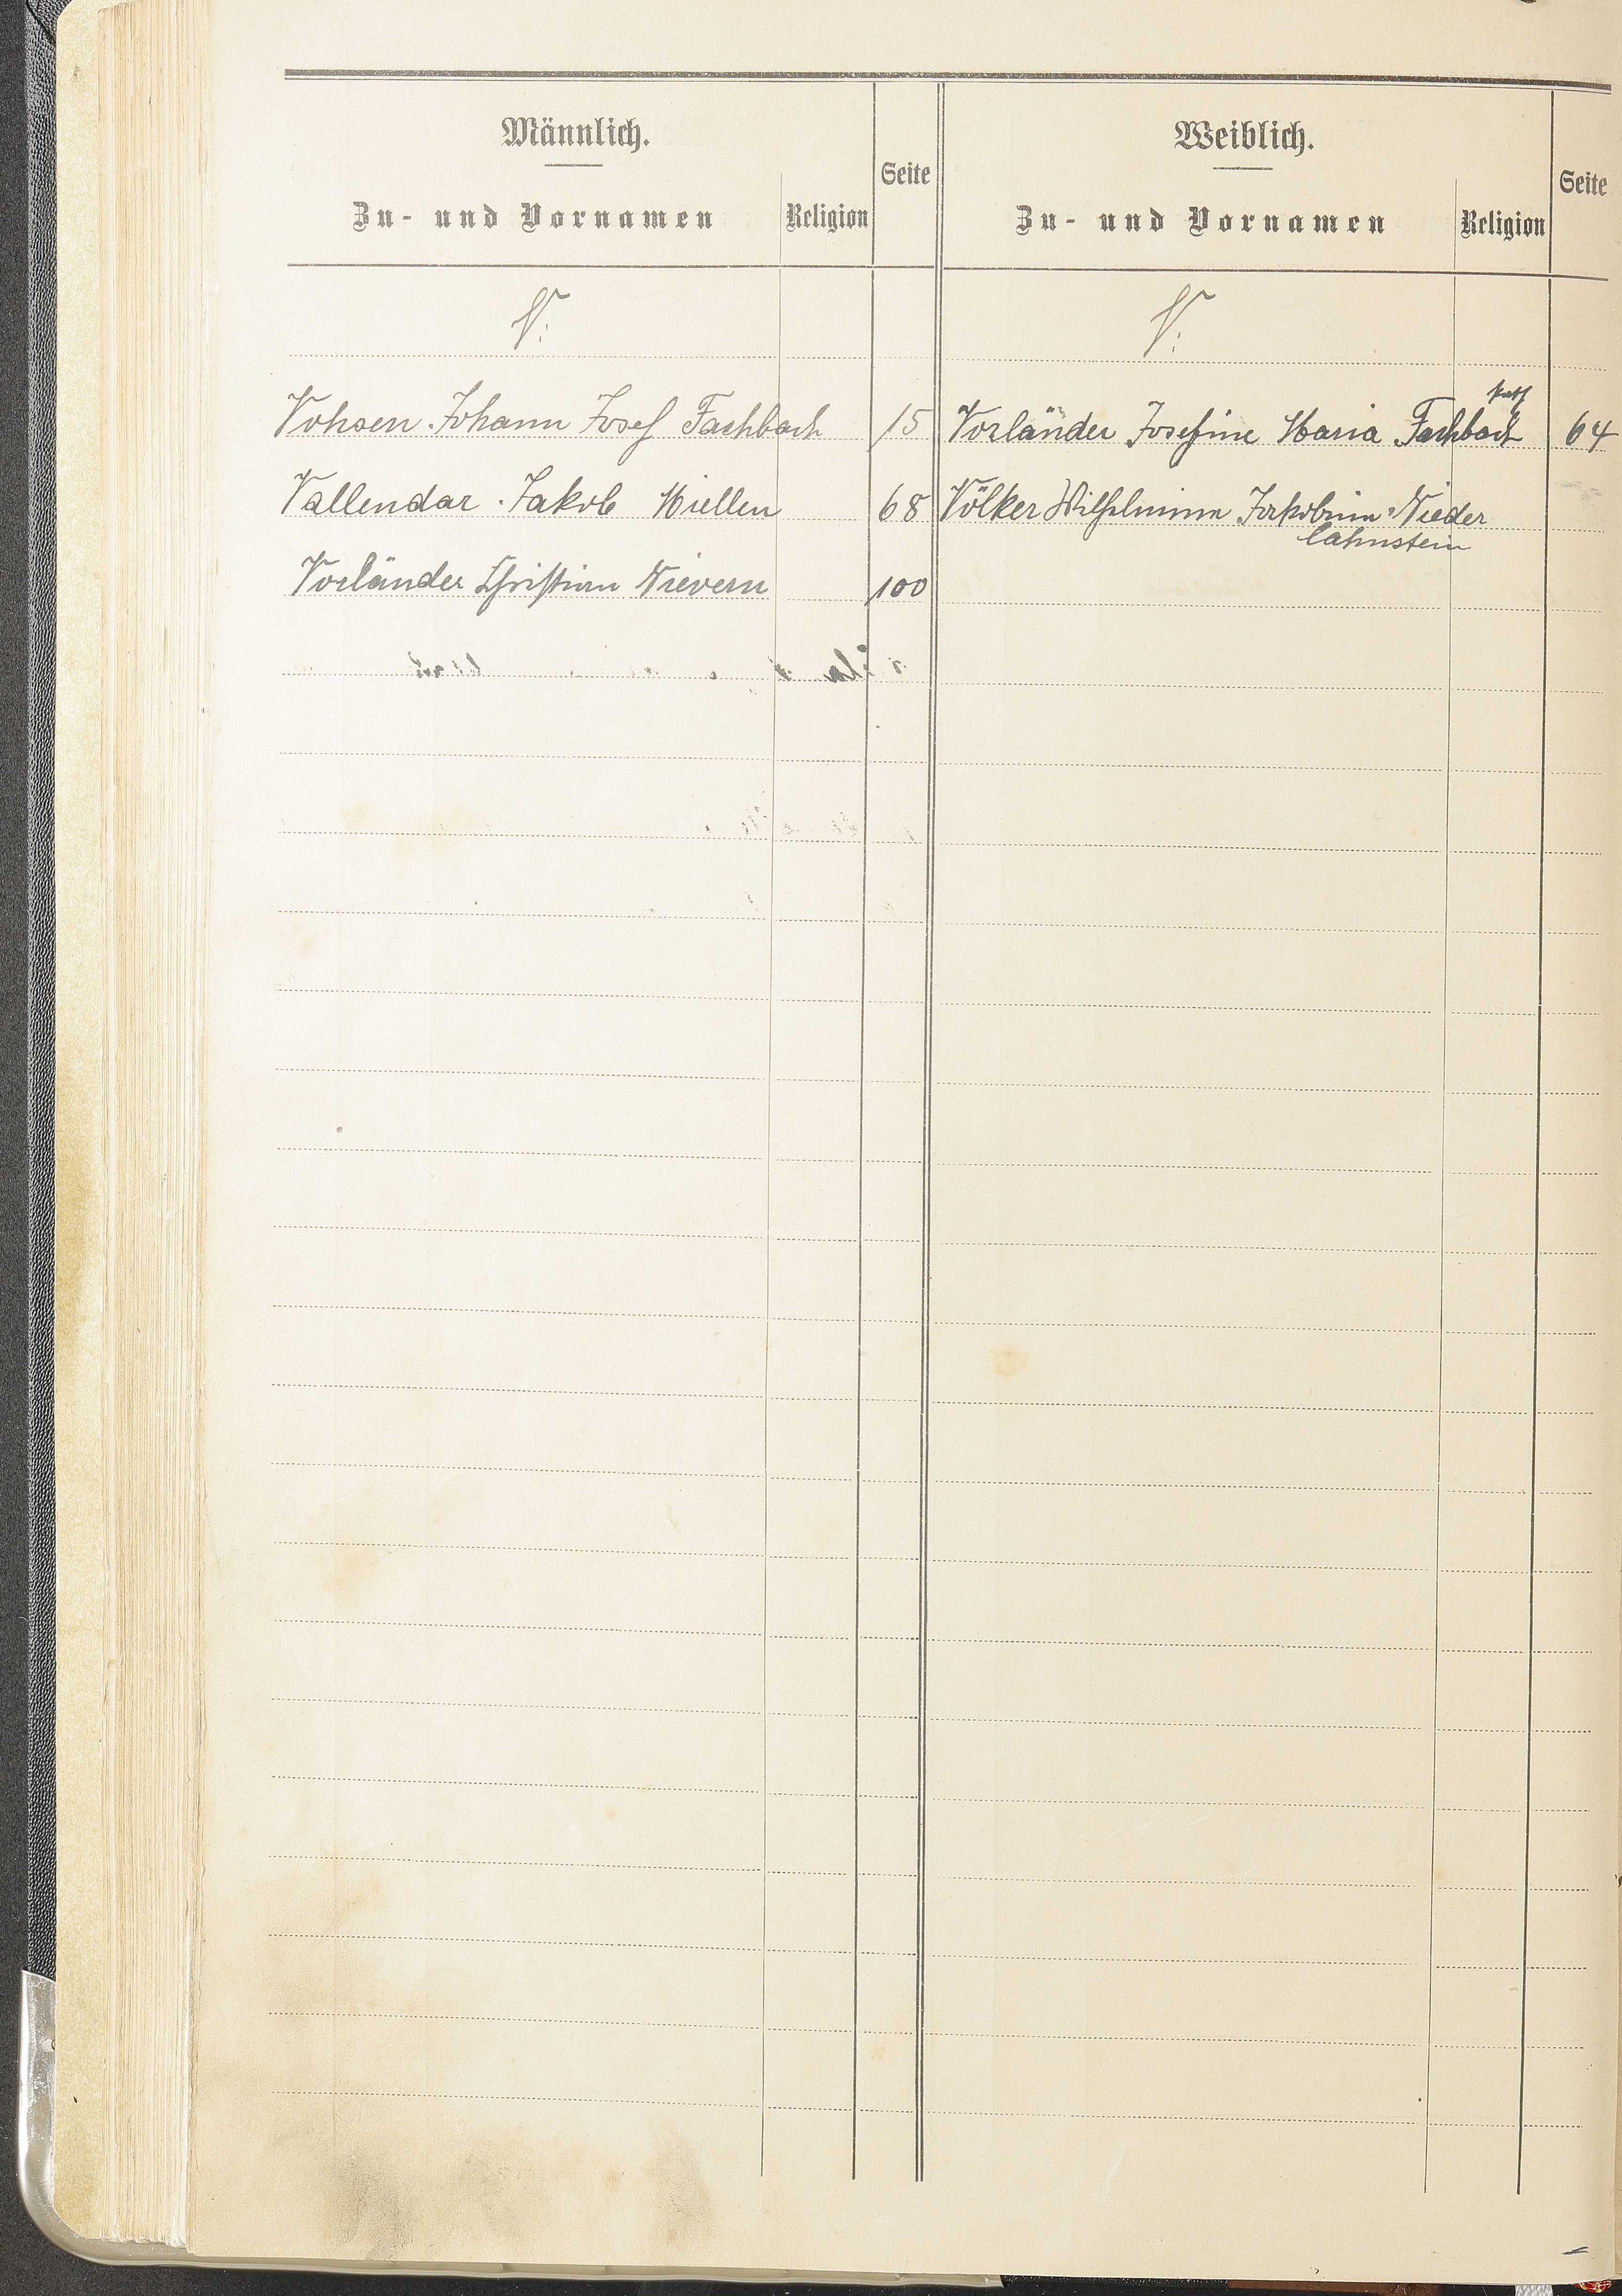 Männlich.
Zu- und Vornamen Religion Seite
V.
Vohsen Johann Josef Fachbach 15
Vallendar Jakob Miellen 68
Vorländer Christian Nievern 100
Weiblich.
Zu- und Vornamen Religion Seite
V.
kath
Vorländer Josefine Maria Fachbach 64
Völker Wilhelmina Jakobina Nieder
lahnstein